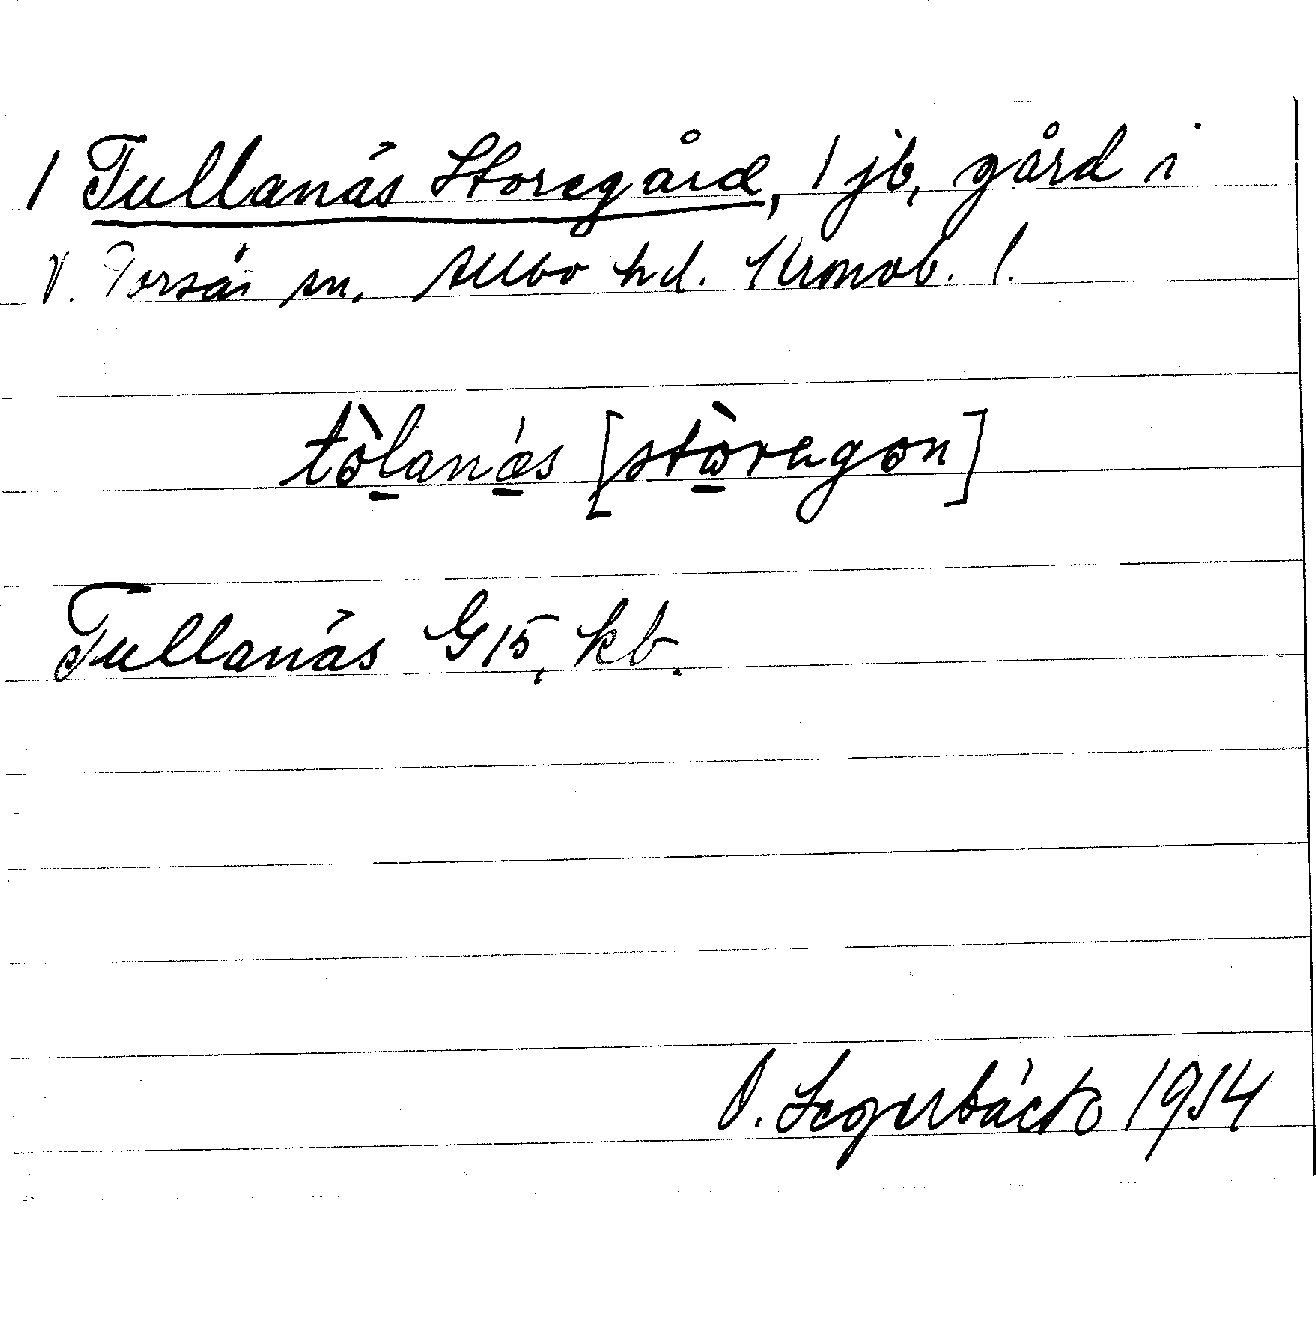 1 Tullanäs Storegård, 1 jb, gård i
V. Torsås sn, Allbo hd. Kronob. l.
tòlanǽs [stòregon]
Tullanäs G 15, kb.
1914